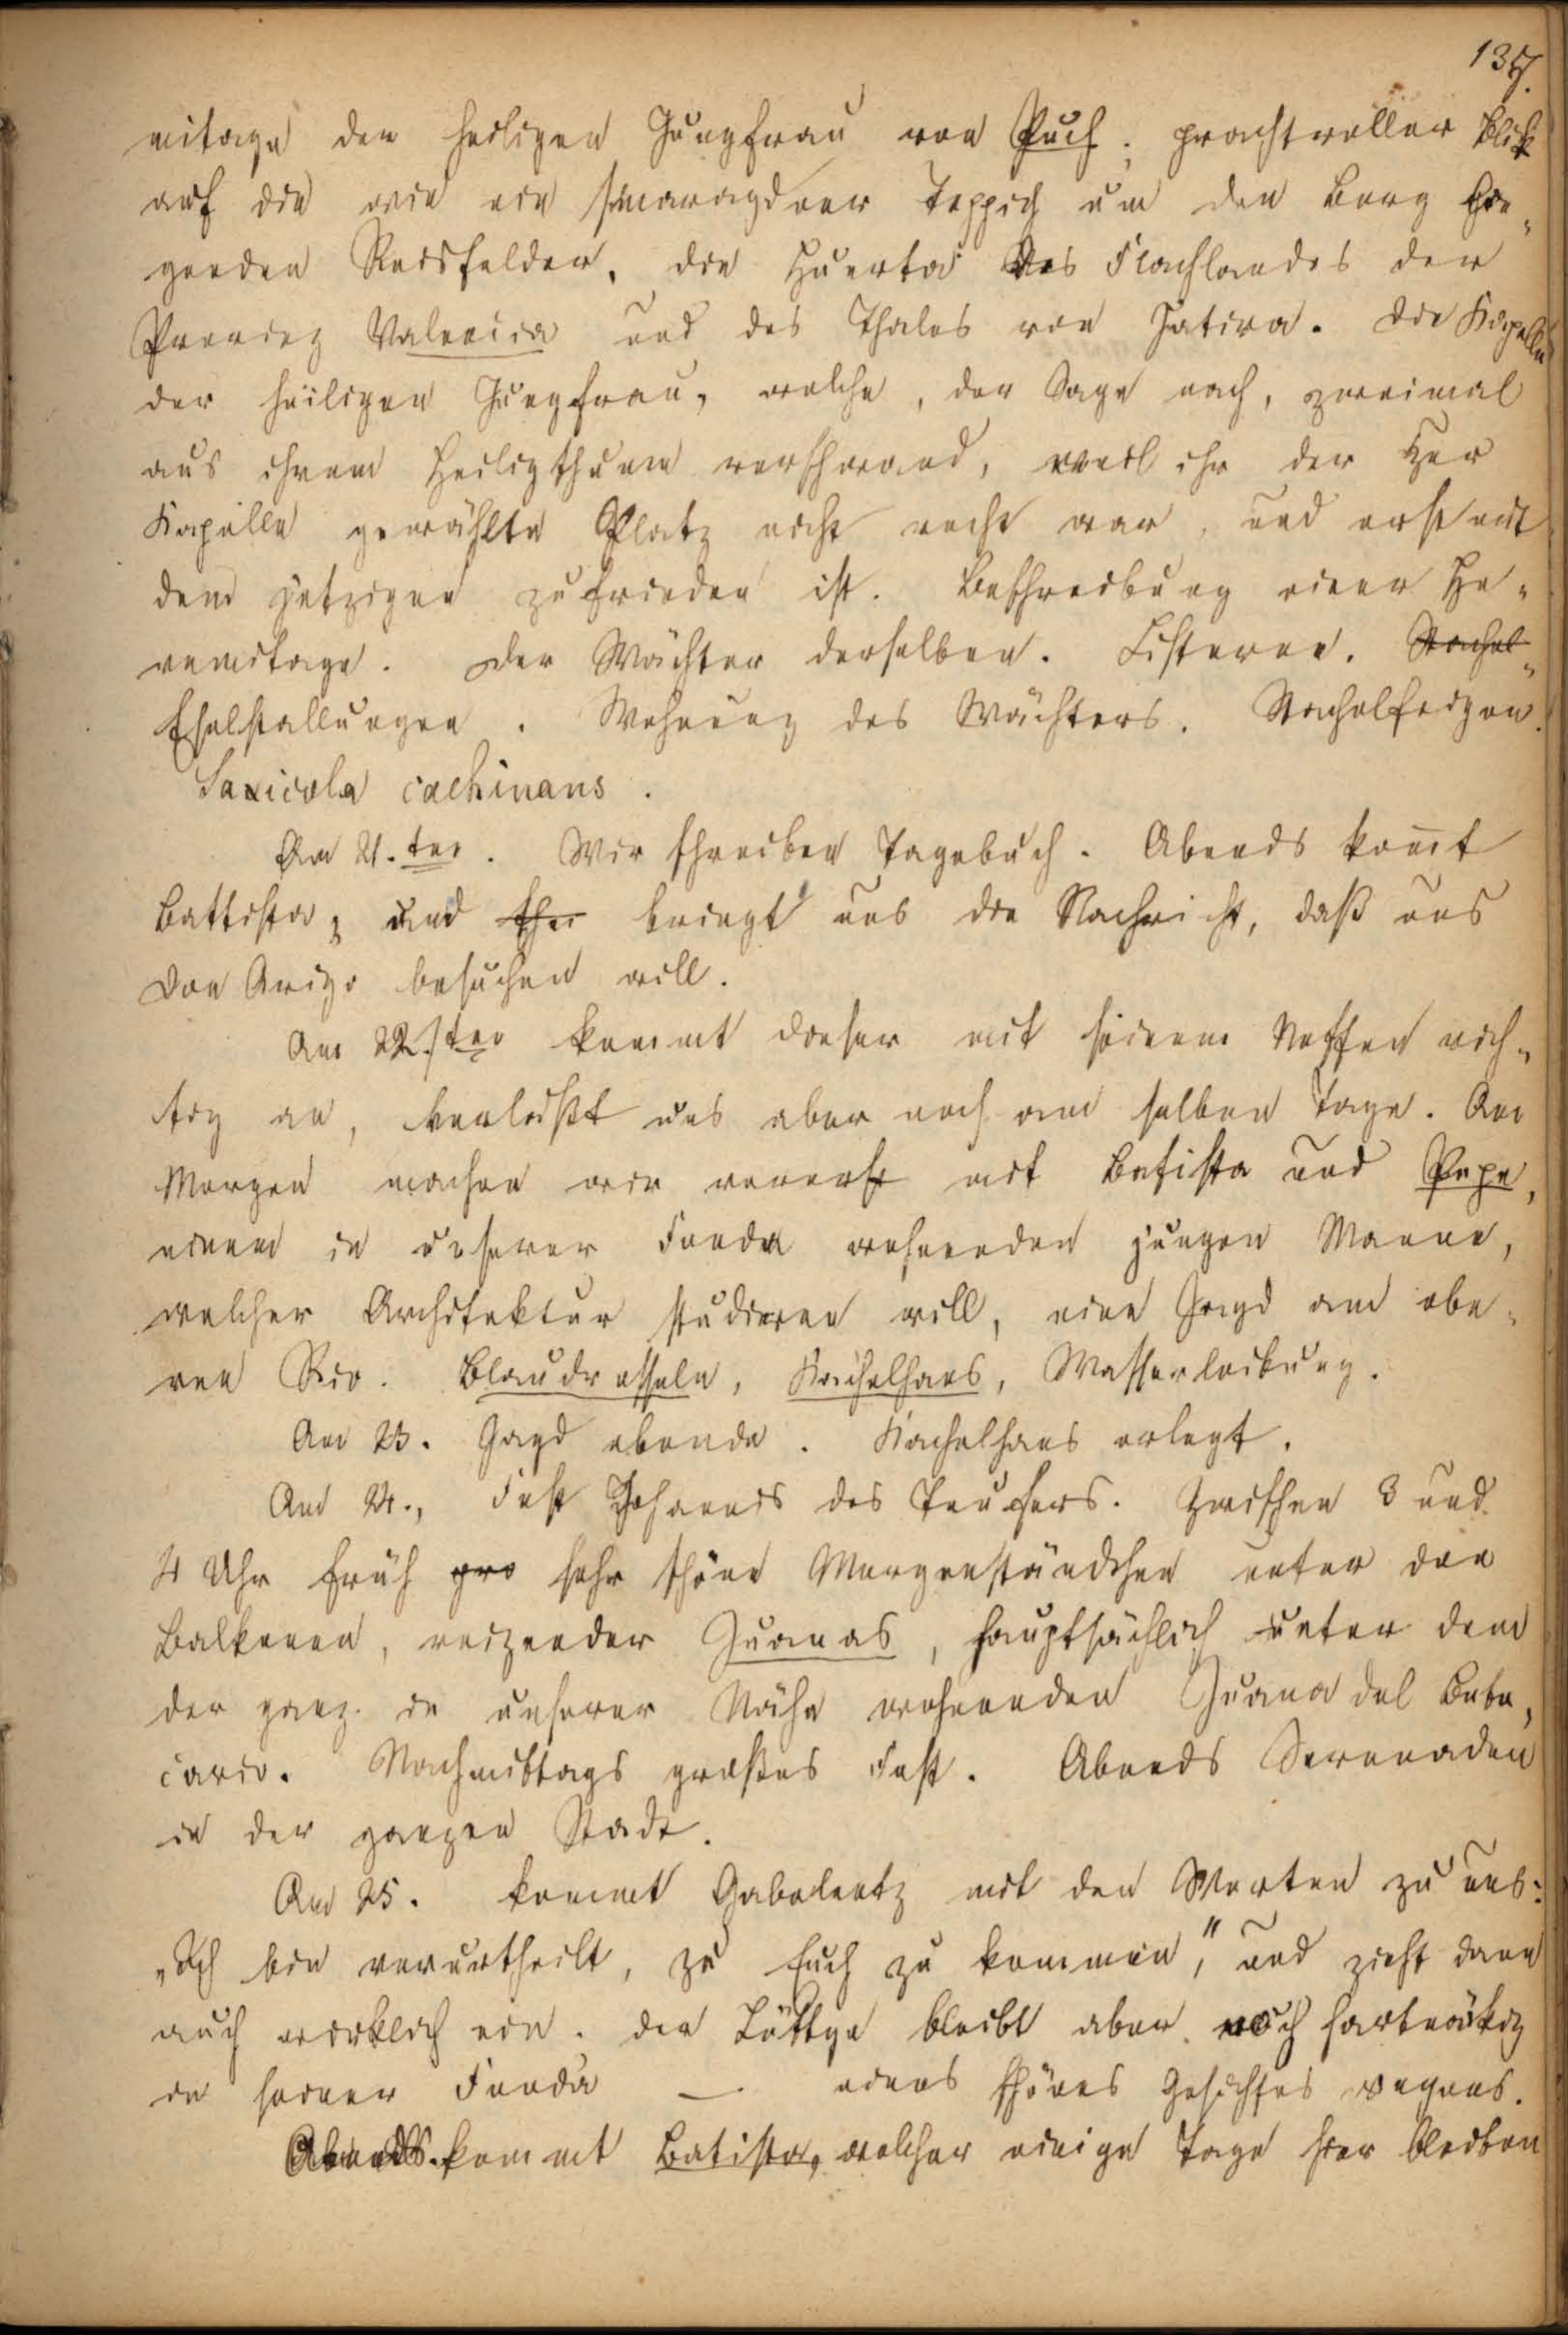 137.
mitage der heiligen Jungfrau von Puch; prachtvoller Blick
auf die wie ein smaragdner Teppich um den Berg lie„
genden Reisfelder, die Huerta des Flachlandes der
Provinz Valencia und des Thales von Jativa. Die Kapelle
der heiligen Jungfrau, welche, der Sage nach, zweimal
aus ihrem Heiligthume verschwand, weil ihr der zur
Kapelle gewählte Platz nicht recht war, und erst mit
dem jetzigen zufrieden ist. Beschreibung einer He„
remitage. Der Wächter derselben. Cisterne. Stachel„
Eselstallungen. Wohnung des Wächters. Stachelfeigen.
Saxicola cachinans.
Am 21.ten. Wir schreiben Tagebuch. Abends kom̅t
Battista, und bringt uns die Nachricht, daß uns
Don Arigo besuchen will.
Am 22.sten kommt dieser mit seinem Neffen rich„
tig an, verläßt uns aber noch am selben Tage. Am
Morgen machen wir vorerst mit Batista und Pepe,
einem in unserer Fonda wohnenden jungen Manne,
welcher Architektur studieren will, eine Jagd am obe„
ren Rio. Blaudrosseln, Kachelhans, Wasserleitung.
Am 23. Jagd ebenda. Kachelhans erlegt.
Am 24., Fest Johannis des Teufers. Zwischen 3 und
4 Uhr früh gro sehr schöne Morgenständchen unter den
Balkonen, reizender Juanas, hauptsächlich unter dem
der ganz in unserer Nähe wohnenden Juana del Bote„
cario. Nachmittags großes Fest. Abends Serenaden
in der ganzen Stadt.
Am 25. kommt Gabelentz mit den Worten zu uns:
„Ich bin verurtheilt, zu Euch zu kommen," und zieht dann
auch wirklich ein. Der Löttge bleibt aber noch hartnäckig
in seiner Fonda — eines schönes Gesichtes wegens.
Abends kommt Batista, welcher einige Tage hier bleiben